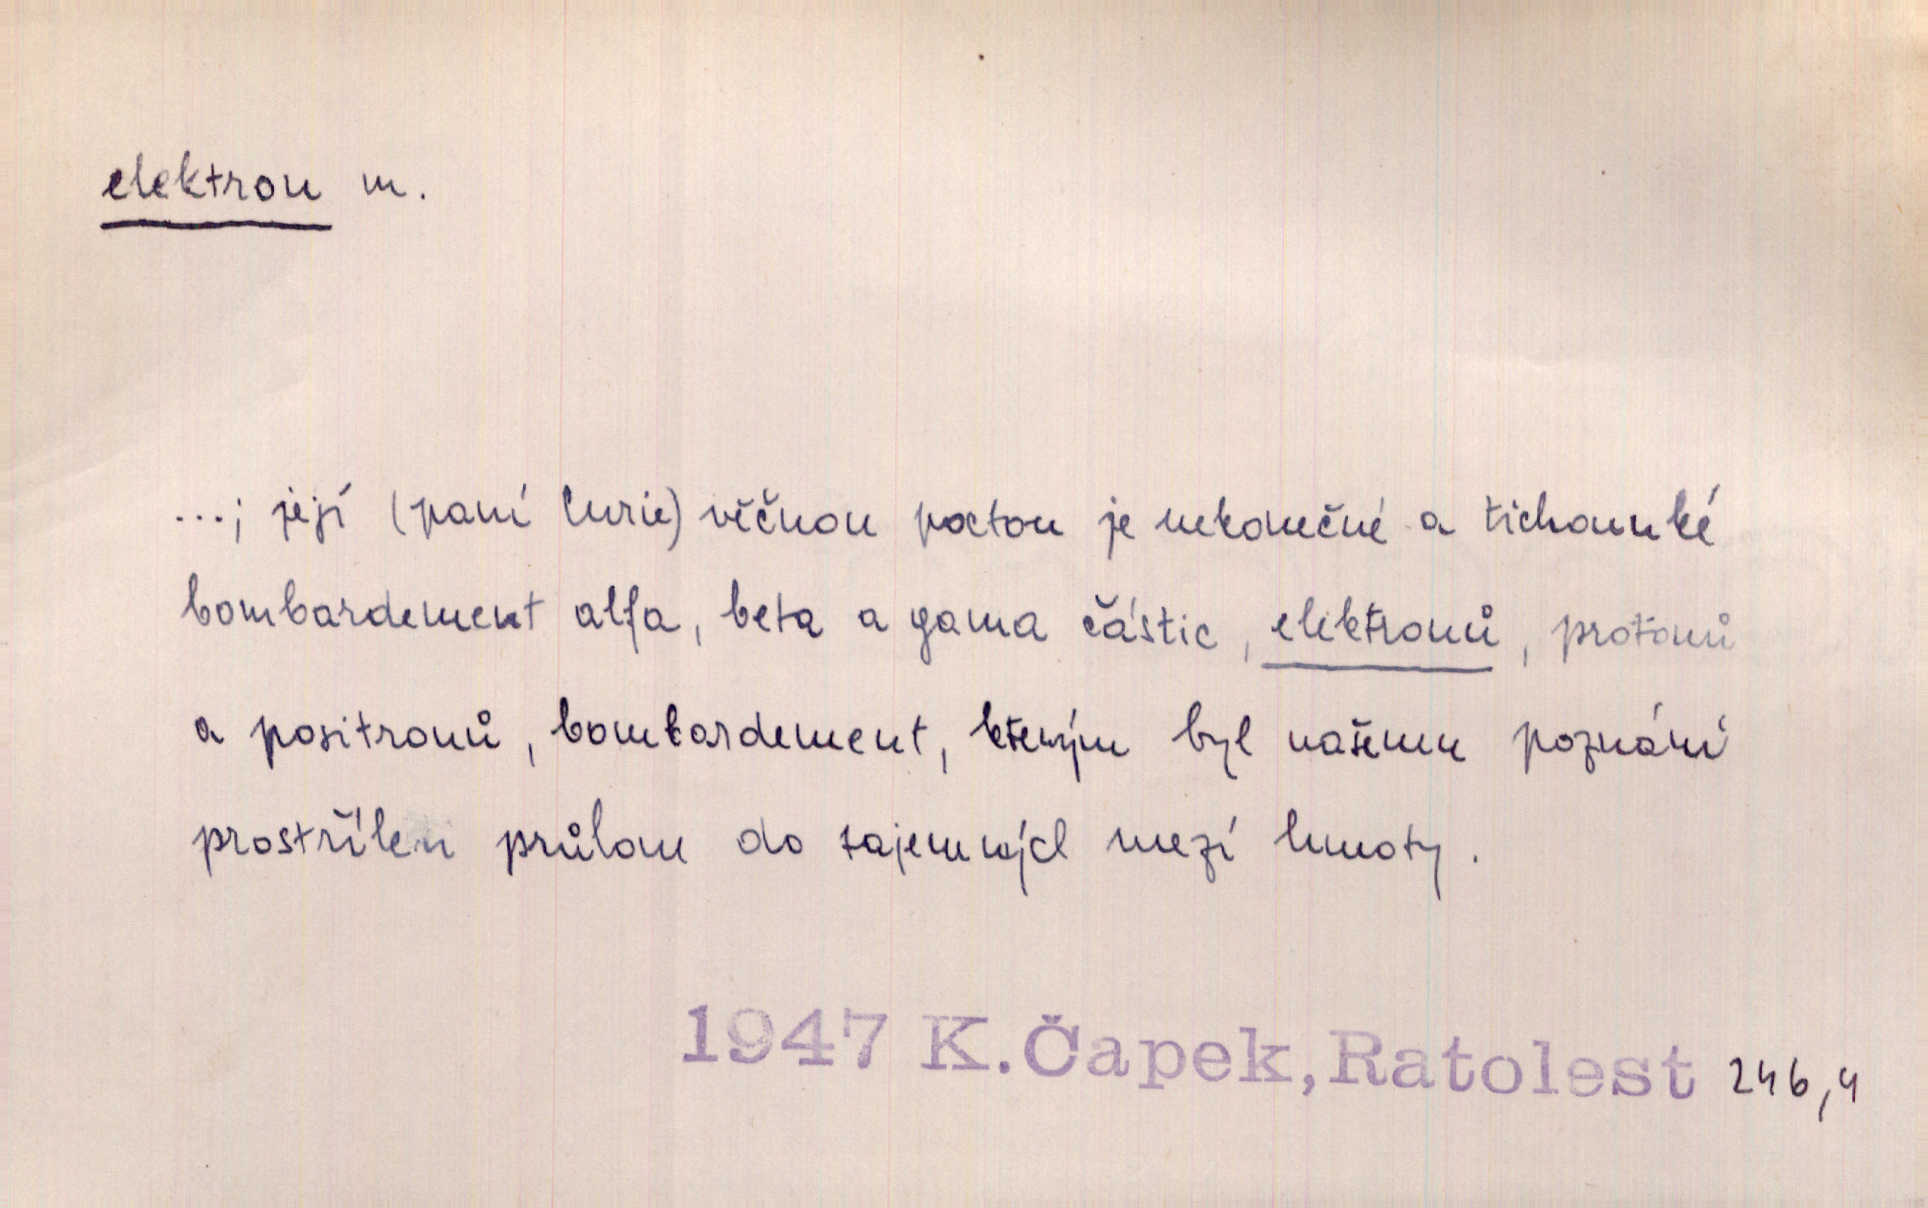 elektron m.
...; její (paní Curie) věčnou poctou je nekonečné a tichounké
bombardement alfa, beta a gama částic, elektronů, protonů
a positronů, bombardement, kterým byl našemu poznání
prostřílen průlom do tajemných mezí hmoty.
1947 K. Čapek, Ratolest 246,4